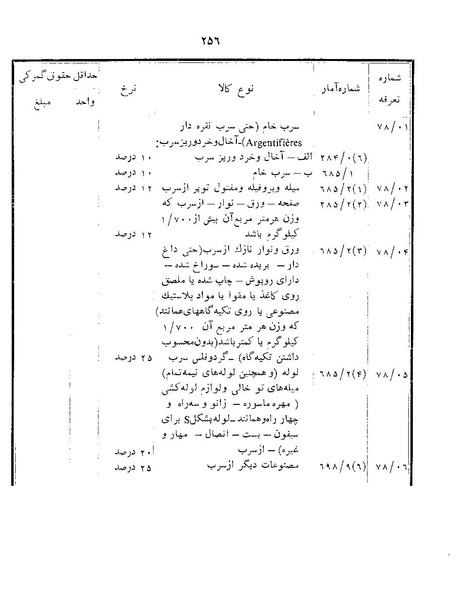 ۲۵۶
شماره تعرفه شماره آمار نوع کالا نرخ حداقل حقوق گمرکی واحد مبلغ
۷۸/۰۱ سرب خام (حتی سرب نقره دار
Argentifières)-آخال وخرد وریز سرب:
۲۸۴/۰(۶) الف – آخال وخرد وریز سرب ۱۰ درصد
۶۸۵/۱ ب – سرب خام ۱۰ درصد
۷۸/۰۲ ۶۸۵/۲(۱) میله وپروفیله ومفتول توپر ازسرب ۱۲ درصد
۷۸/۰۳ ۶۸۵/۲(۲) صفحه – ورق – نوار – ازسرب که
وزن هرمتر مربع آن بیش از ۱/۷۰۰
کیلوگرم باشد ۱۲ درصد
۷۸/۰۴ ۶۸۵/۲(۳) ورق ونوار نازك ازسرب(حتی داغ
دار – بریده شده – سوراخ شده –
دارای روپوش – چاپ شده یا ملصق
روی کاغذ یا مقوا یا مواد پلاستیك
مصنوعی یا روی تکیه گاههای همانند)
که وزن هر متر مربع آن ۱/۷۰۰
کیلوگرم یا کمتر باشد(بدون محسوب
داشتن تکیه گاه) – گردوفلس سرب ۲۵ درصد
۷۸/۰۵ ۶۸۵/۲(۴) لوله (وهمچنین لوله های نیمه تمام)
میله های تو خالی ولوازم لوله کشی
(مهره ماسوره – زانو و سه راه و
چهار راه وهمانند – لوله بشکل S برای
سیفون – بست – اتصال – مهار و
غیره) – ازسرب ۲۰ درصد
۷۸/۰۶ ۶۹۸/۹(۶) مصنوعات دیگر ازسرب ۲۵ درصد